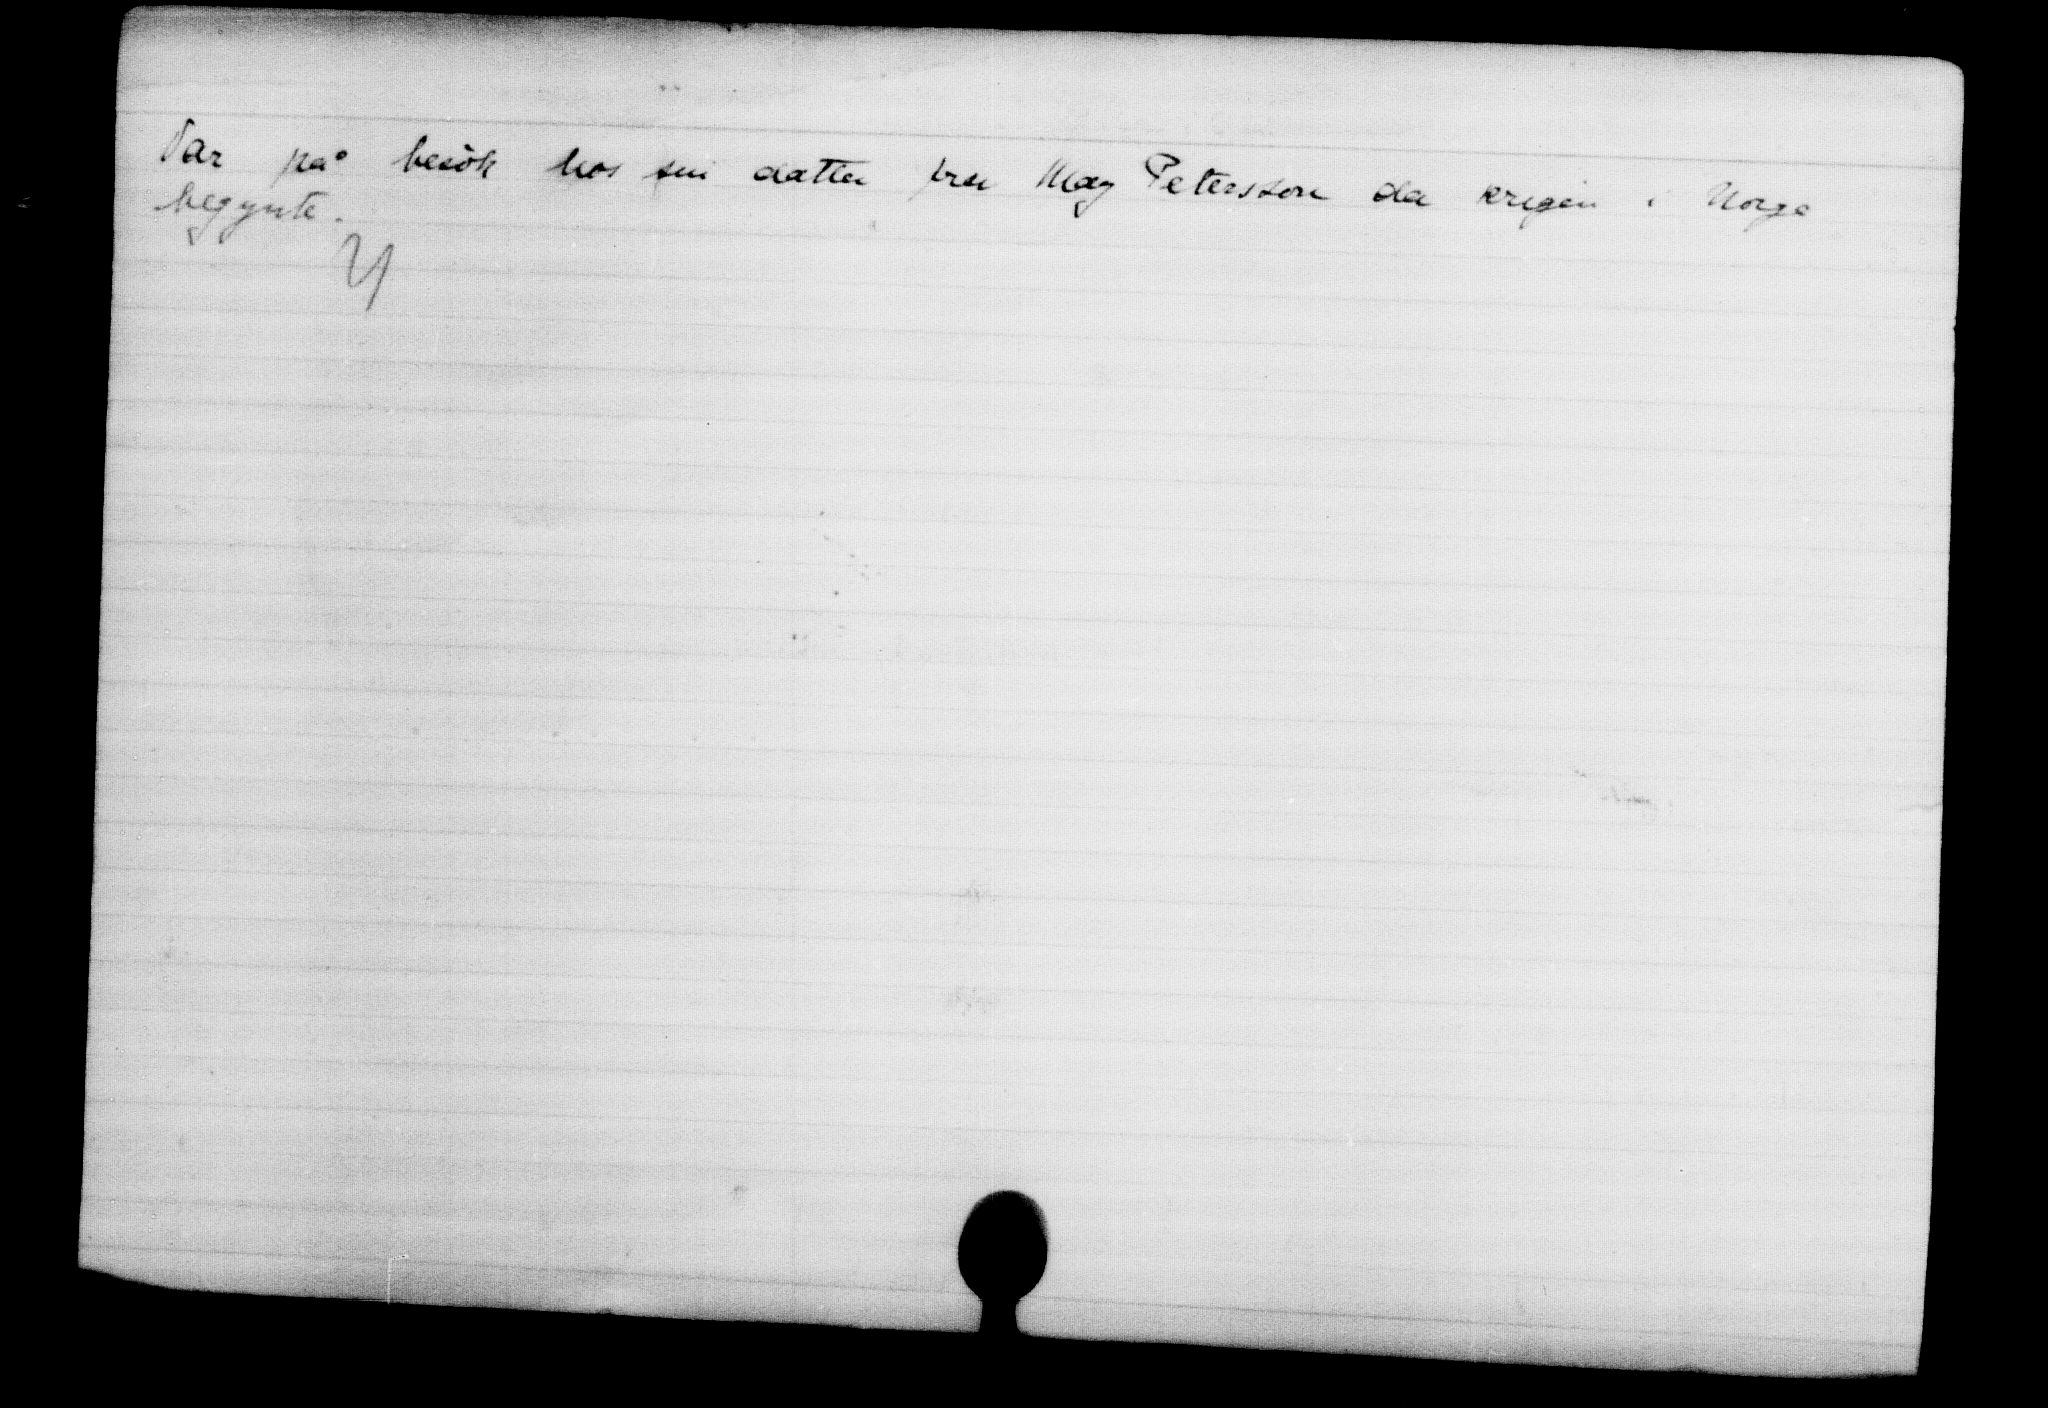 Var på besök hos sin datter fru May Petersson da krigen i Norge
begynte.